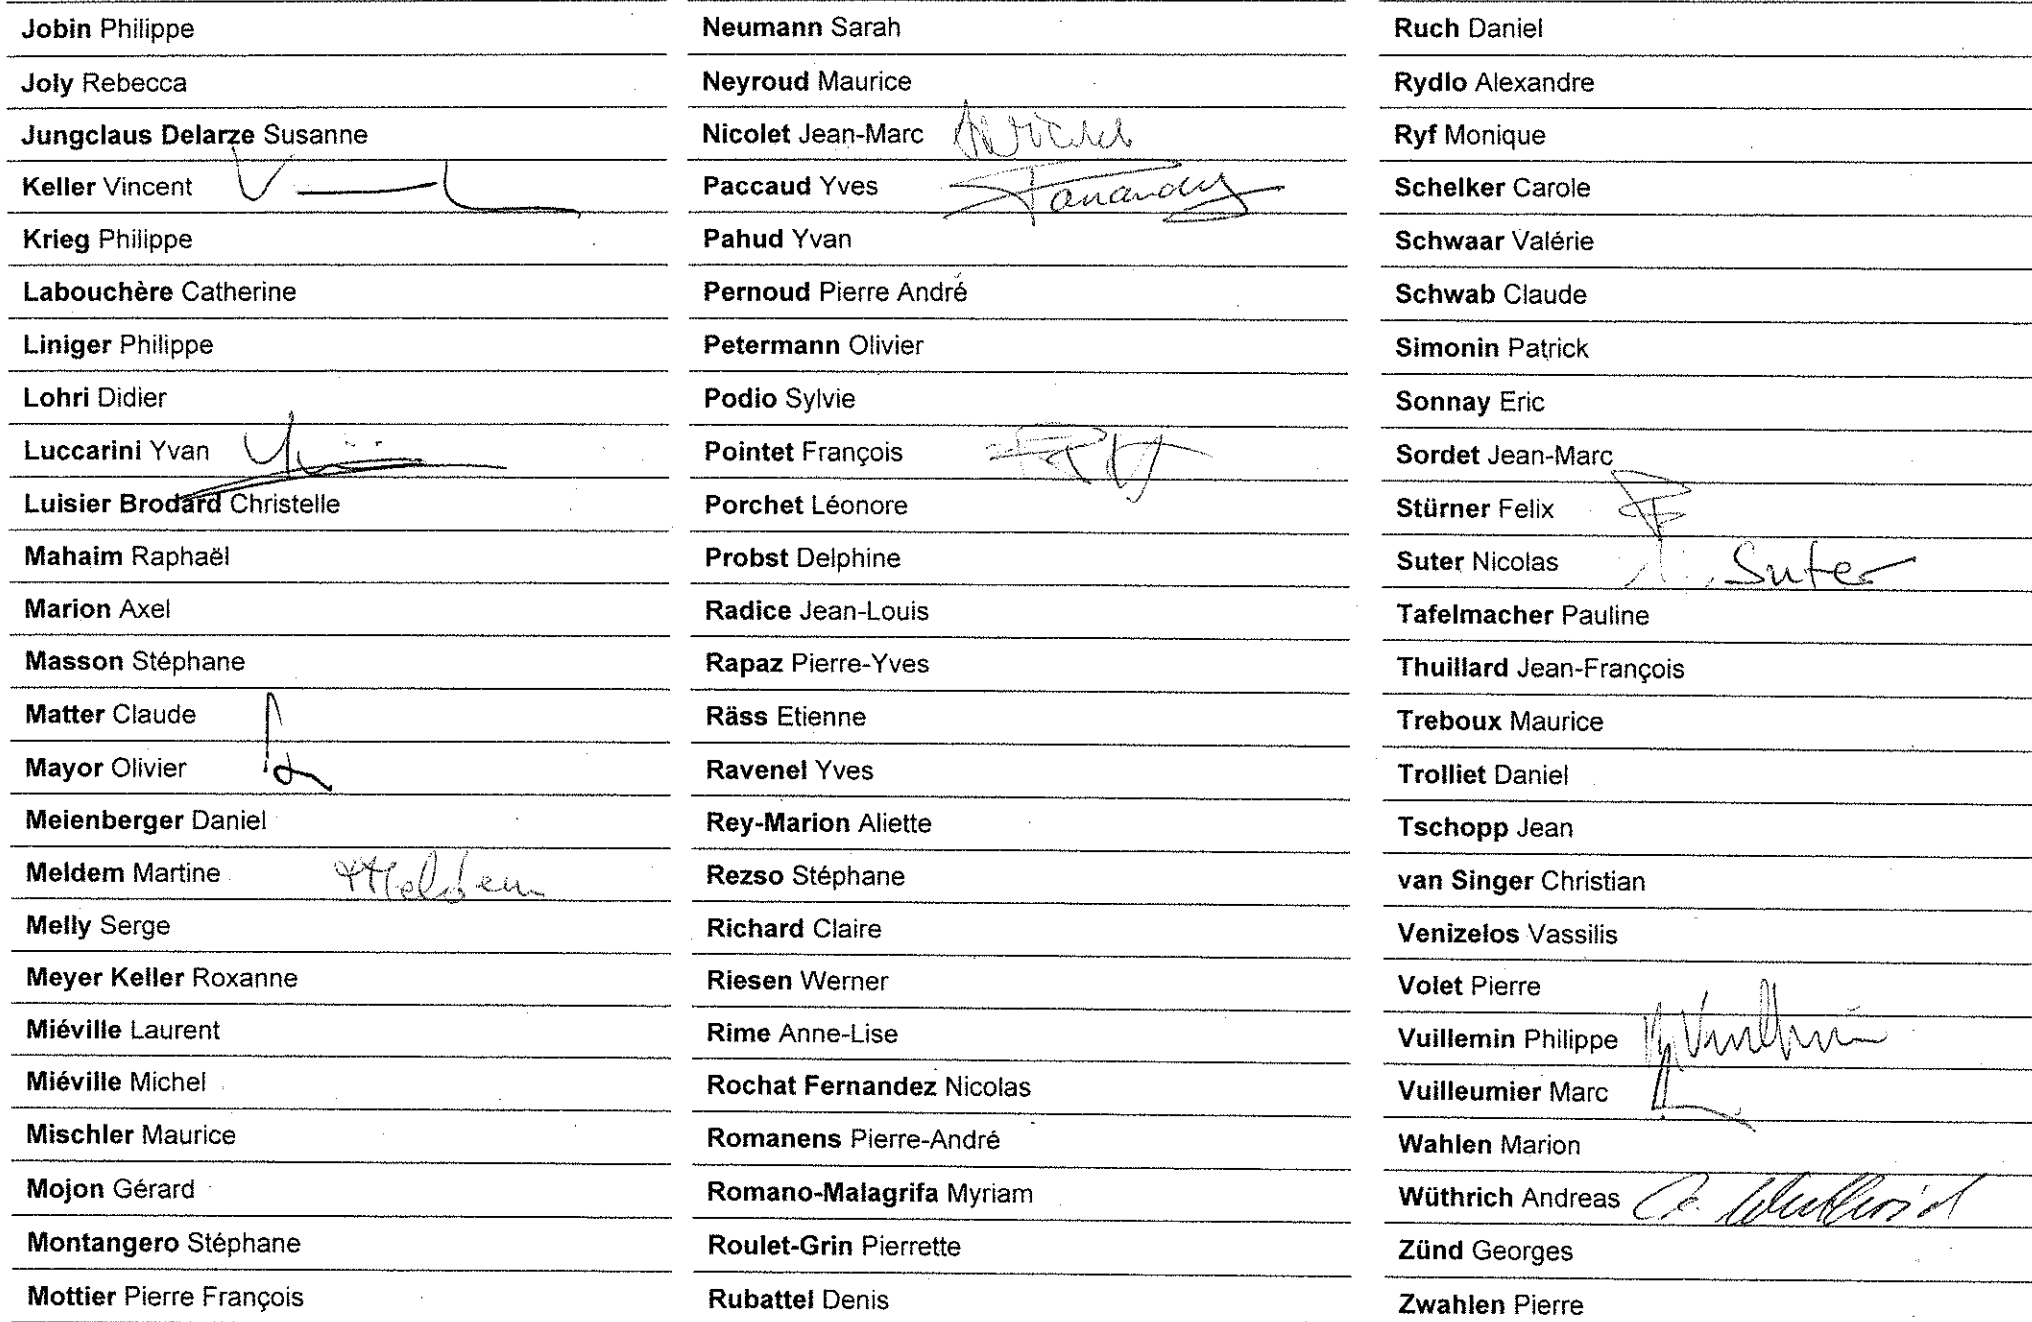 Jobin Philippe
Joly Rebecca
Jungclaus Delarze Susanne
Keller Vincent
Krieg Philippe
Labouchère Catherine
Liniger Philippe
Lohri Didier
Luccarini Yvan
Luisier Brodard Christelle
Mahaim Raphaël
Marion Axel
Masson Stéphane
Matter Claude
Mayor Olivier
Meienberger Daniel
Meldem Martine Meldem
Melly Serge
Meyer Keller Roxanne
Miéville Laurent
Miéville Michel
Mischler Maurice
Mojon Gérard
Montangero Stéphane
Mottier Pierre François
Neumann Sarah
Neyroud Maurice
Nicolet Jean-Marc
Paccaud Yves
Pahud Yvan
Pernoud Pierre André
Petermann Olivier
Podio Sylvie
Pointet François
Porchet Léonore
Probst Delphine
Radice Jean-Louis
Rapaz Pierre-Yves
Räss Etienne
Ravenel Yves
Rey-Marion Aliette
Rezso Stéphane
Richard Claire
Riesen Werner
Rime Anne-Lise
Rochat Fernandez Nicolas
Romanens Pierre-André
Romano-Malagrifa Myriam
Roulet-Grin Pierrette
Rubattel Denis
Ruch Daniel
Rydlo Alexandre
Ryf Monique
Schelker Carole
Schwaar Valérie
Schwab Claude
Simonin Patrick
Sonnay Eric
Sordet Jean-Marc
Stürner Felix
Suter Nicolas Suter
Tafelmacher Pauline
Thuillard Jean-François
Treboux Maurice
Trolliet Daniel
Tschopp Jean
van Singer Christian
Venizelos Vassilis
Volet Pierre
Vuillemin Philippe
Vuilleumier Marc
Wahlen Marion
Wüthrich Andreas
Zünd Georges
Zwahlen Pierre